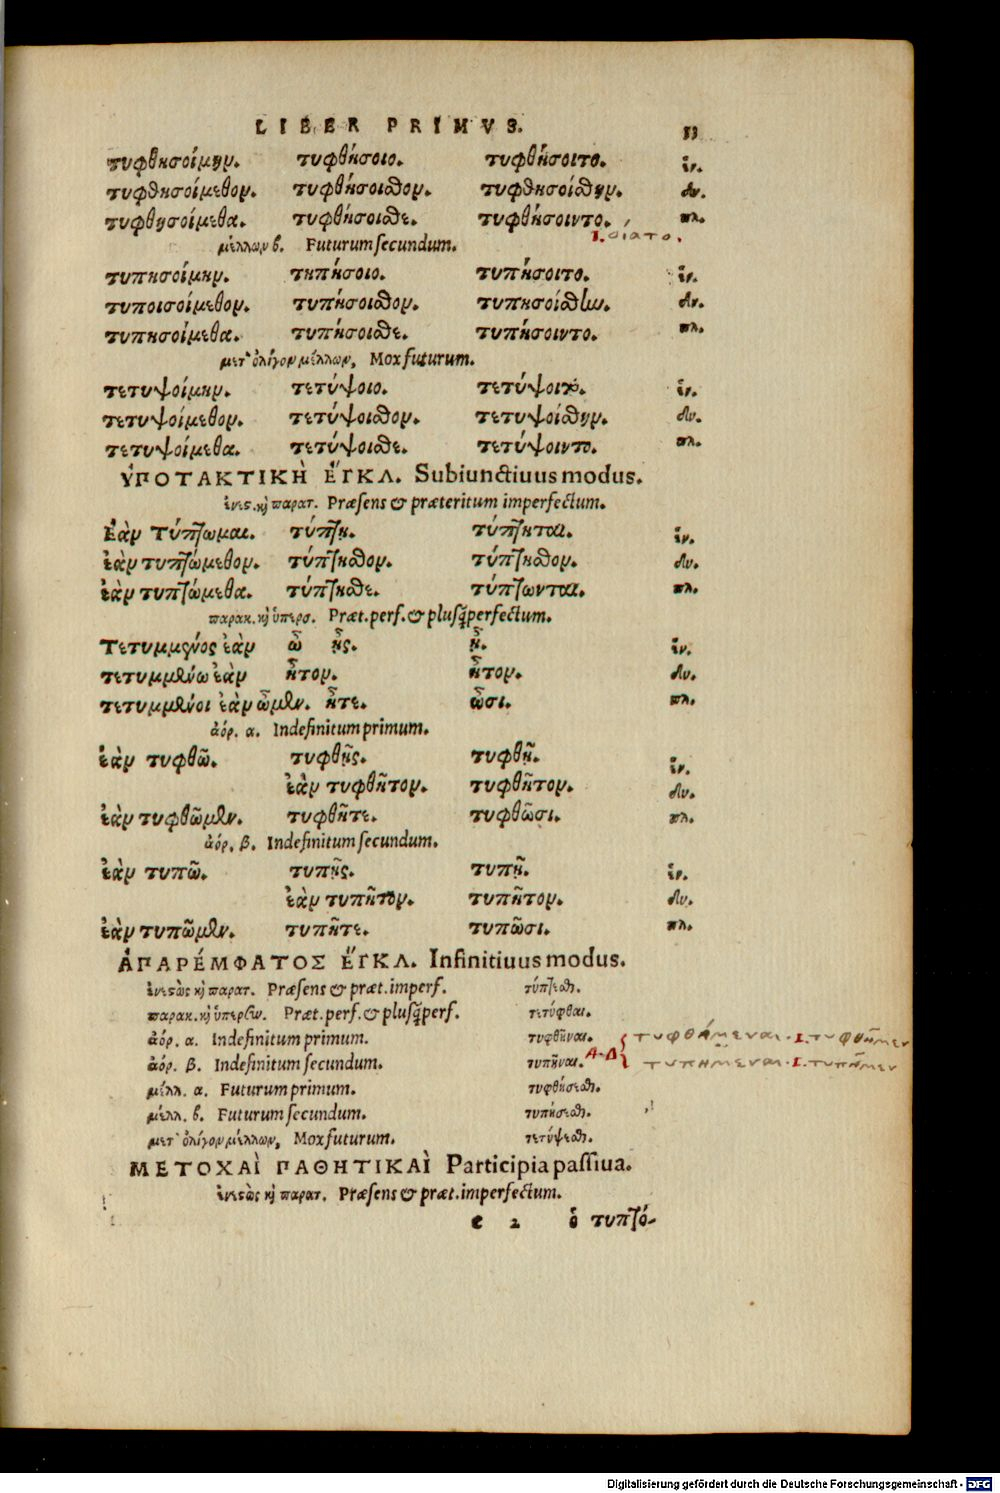 LIBER PRIMVS. 53
τυφθησοίμην. τυφθήσοιο. τυφθήσοιτο. ἑν.
τυφθησοίμεθον. τυφθήσοισθον. τυφθησοίσθην. δυ.
τυφθησοίμεθα. τυφθήσοισθε. τυφθήσοιντο. πλ.
I. οίατο.
μέλλων β. Futurum secundum.
τυπησοίμην. τηπήσοιο. τυπήσοιτο. ἑν.
τυποισοίμεθον. τυπήσοισθον. τυπησοίσθην. δυ.
τυπησοίμεθα. τυπήσοισθε. τυπήσοιντο. πλ.
μετ' ὀλίγον μέλλων, Mox futurum.
τετυψοίμην. τετύψοιο. τετύψοιτο. ἑν.
τετυψοίμεθον. τετύψοισθον. τετυψοίσθην. δυ.
τετυψοίμεθα. τετύψοισθε. τετύψοιντο. πλ.
ὙΠΟΤΑΚΤΙΚῊ ἜΓΚΛ. Subiunctiuus modus.
ἐνεστ. κὶ παρατ. Præsens & præteritum imperfectum.
Ἐὰν Τύπτωμαι. τύπτῃ. τύπτηται. ἑν.
ἐὰν τυπτώμεθον. τύπτησθον. τύπτησθον. δυ.
ἐὰν τυπτώμεθα. τύπτησθε. τύπτωνται. πλ.
παρακ. κὶ ὑπερσ. Præt. perf. & plusq̃perfectum.
Τετυμμένος ἐὰν ὦ ᾖς. ᾖ. ἑν.
τετυμμένω ἐὰν ἦτον. ἦτον. δυ.
τετυμμένοι ἐὰν ὦμεν. ἦτε. ὦσι. πλ.
ἀόρ. α. Indefinitum primum.
ἐὰν τυφθῶ. τυφθῇς. τυφθῇ. ἑν.
ἐὰν τυφθῆτον. τυφθῆτον. δυ.
ἐὰν τυφθῶμεν. τυφθῆτε. τυφθῶσι. πλ.
ἀόρ. β. Indefinitum secundum.
ἐὰν τυπῶ. τυπῇς. τυπῇ. ἑν.
ἐὰν τυπῆτον. τυπῆτον. δυ.
ἐὰν τυπῶμεν. τυπῆτε. τυπῶσι. πλ.
ἈΠΑΡΈΜΦΑΤΟΣ ἜΓΚΛ. Infinitiuus modus.
ἐνεστὼς κὶ παρατ. Præsens & præt. imperf. τύπτεσθ.
παρακ. κὶ ὑπερσυν. Præt. perf. & plusq̃perf. τετύφθαι.
ἀόρ. α. Indefinitum primum. τυφθῆναι. τυφθήμεναι. I. τυφθῆμεν
ἀόρ. β. Indefinitum secundum. τυπῆναι. Α-Δ τυπήμεναι. I. τυπῆμεν
μέλλ. α. Futurum primum. τυφθήσεσθ.
μέλλ. β. Futurum secundum. τυπήσεσθ.
μετ' ὀλίγον μέλλων, Mox futurum. τετύψεσθ.
ΜΕΤΟΧΑῚ ΠΑΘΗΤΙΚΑῚ Participia passiua.
ἐνεστὼς κὶ παρατ. Præsens & præt. imperfectum.
e 2 ὁ τυπτό-
Digitalisierung gefördert durch die Deutsche Forschungsgemeinschaft - DFG